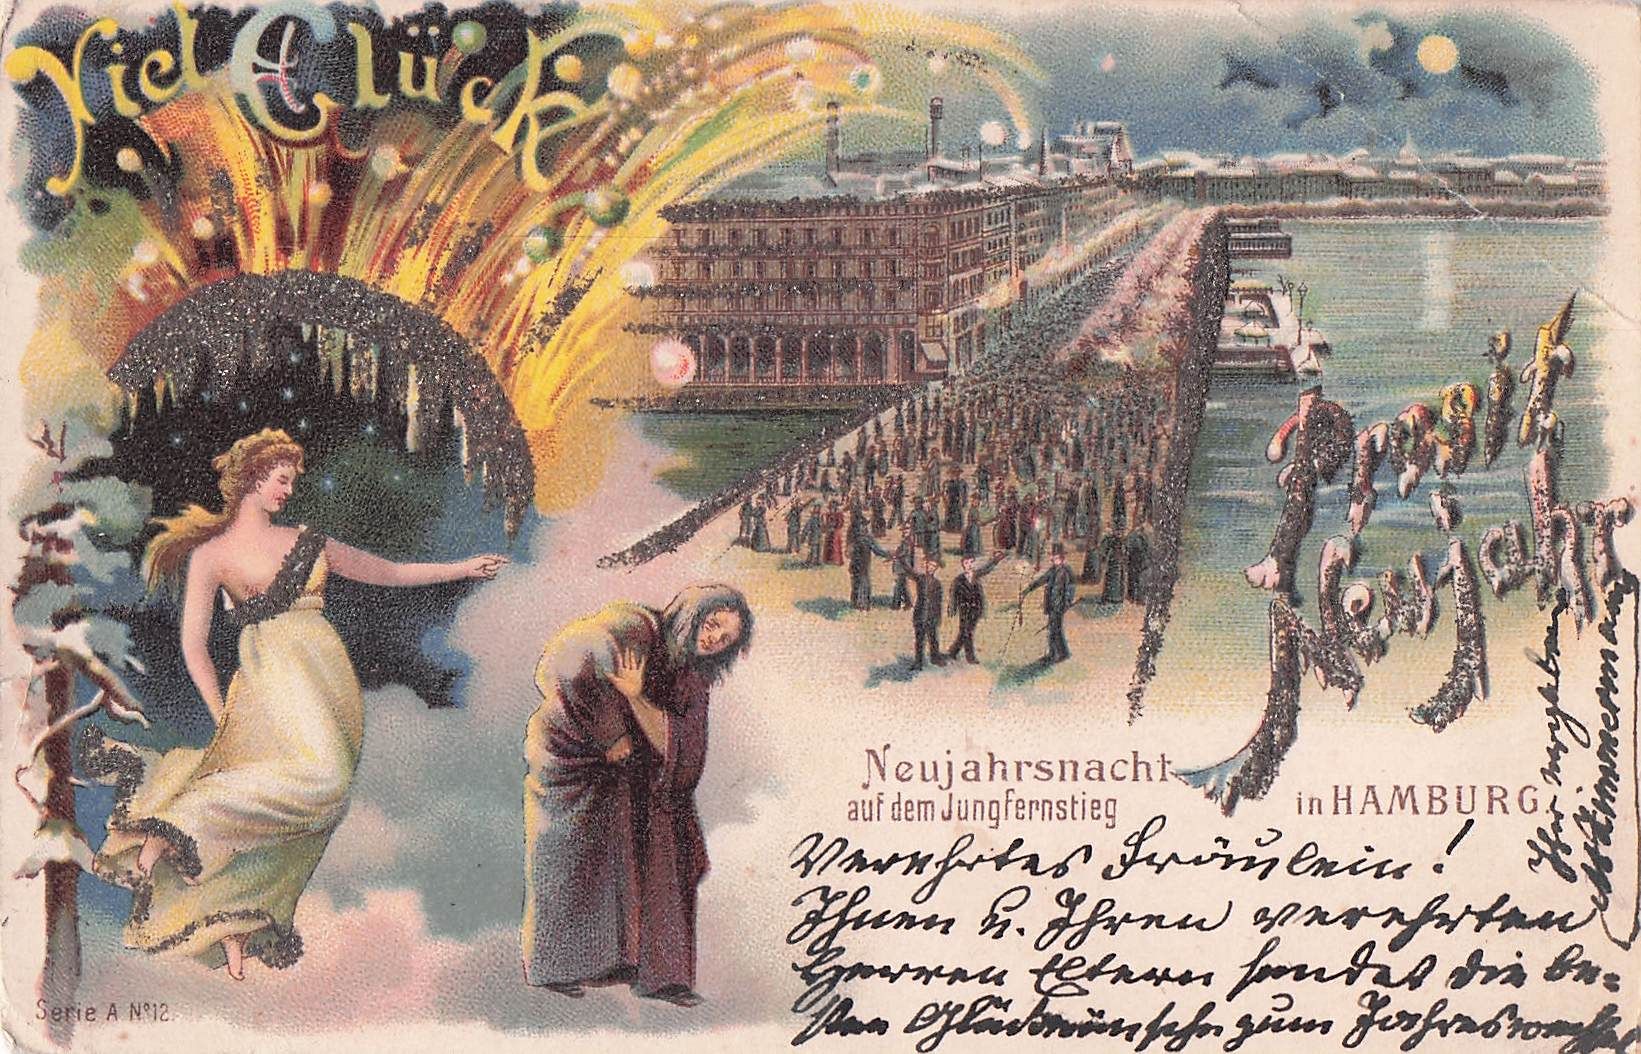 Viel Glück
Prosit
Neujahr
Neujahrsnacht
auf dem Jungfernstieg
in HAMBURG.
Verehrtes Fräulein!
Ihnen u. Ihren verehrten
Herren Eltern sendet die be-
sten Glückwünsche zum Jahreswechsel
Ihr ergebener
Serie A Nº 12.